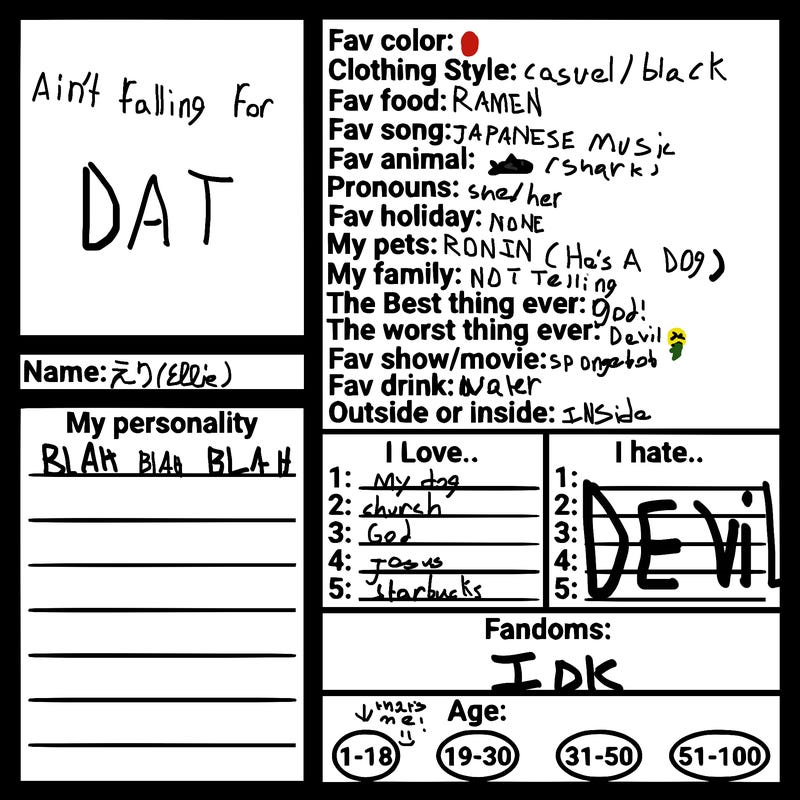 Ain't falling For
DAT
Name: えり(Ellie)
My personality
BLAH BLAH BLAH
Fav color:
Clothing Style: casuel/black
Fav food: RAMEN
Fav song: JAPANESE Music
Fav animal: (shark)
Pronouns: she/her
Fav holiday: NONE
My pets: RONIN (He's A DOg)
My family: NOT Telling
The Best thing ever: god!
The worst thing ever: Devil
Fav show/movie: spongebob
Fav drink: Water
Outside or inside: INSide
I Love..
1: My dog
2: church
3: God
4: Jesus
5: starbucks
I hate..
1:
2:
3:
4:
5:
DEViL
Fandoms:
IDK
↓ that's me! :)
Age:
1-18 19-30 31-50 51-100